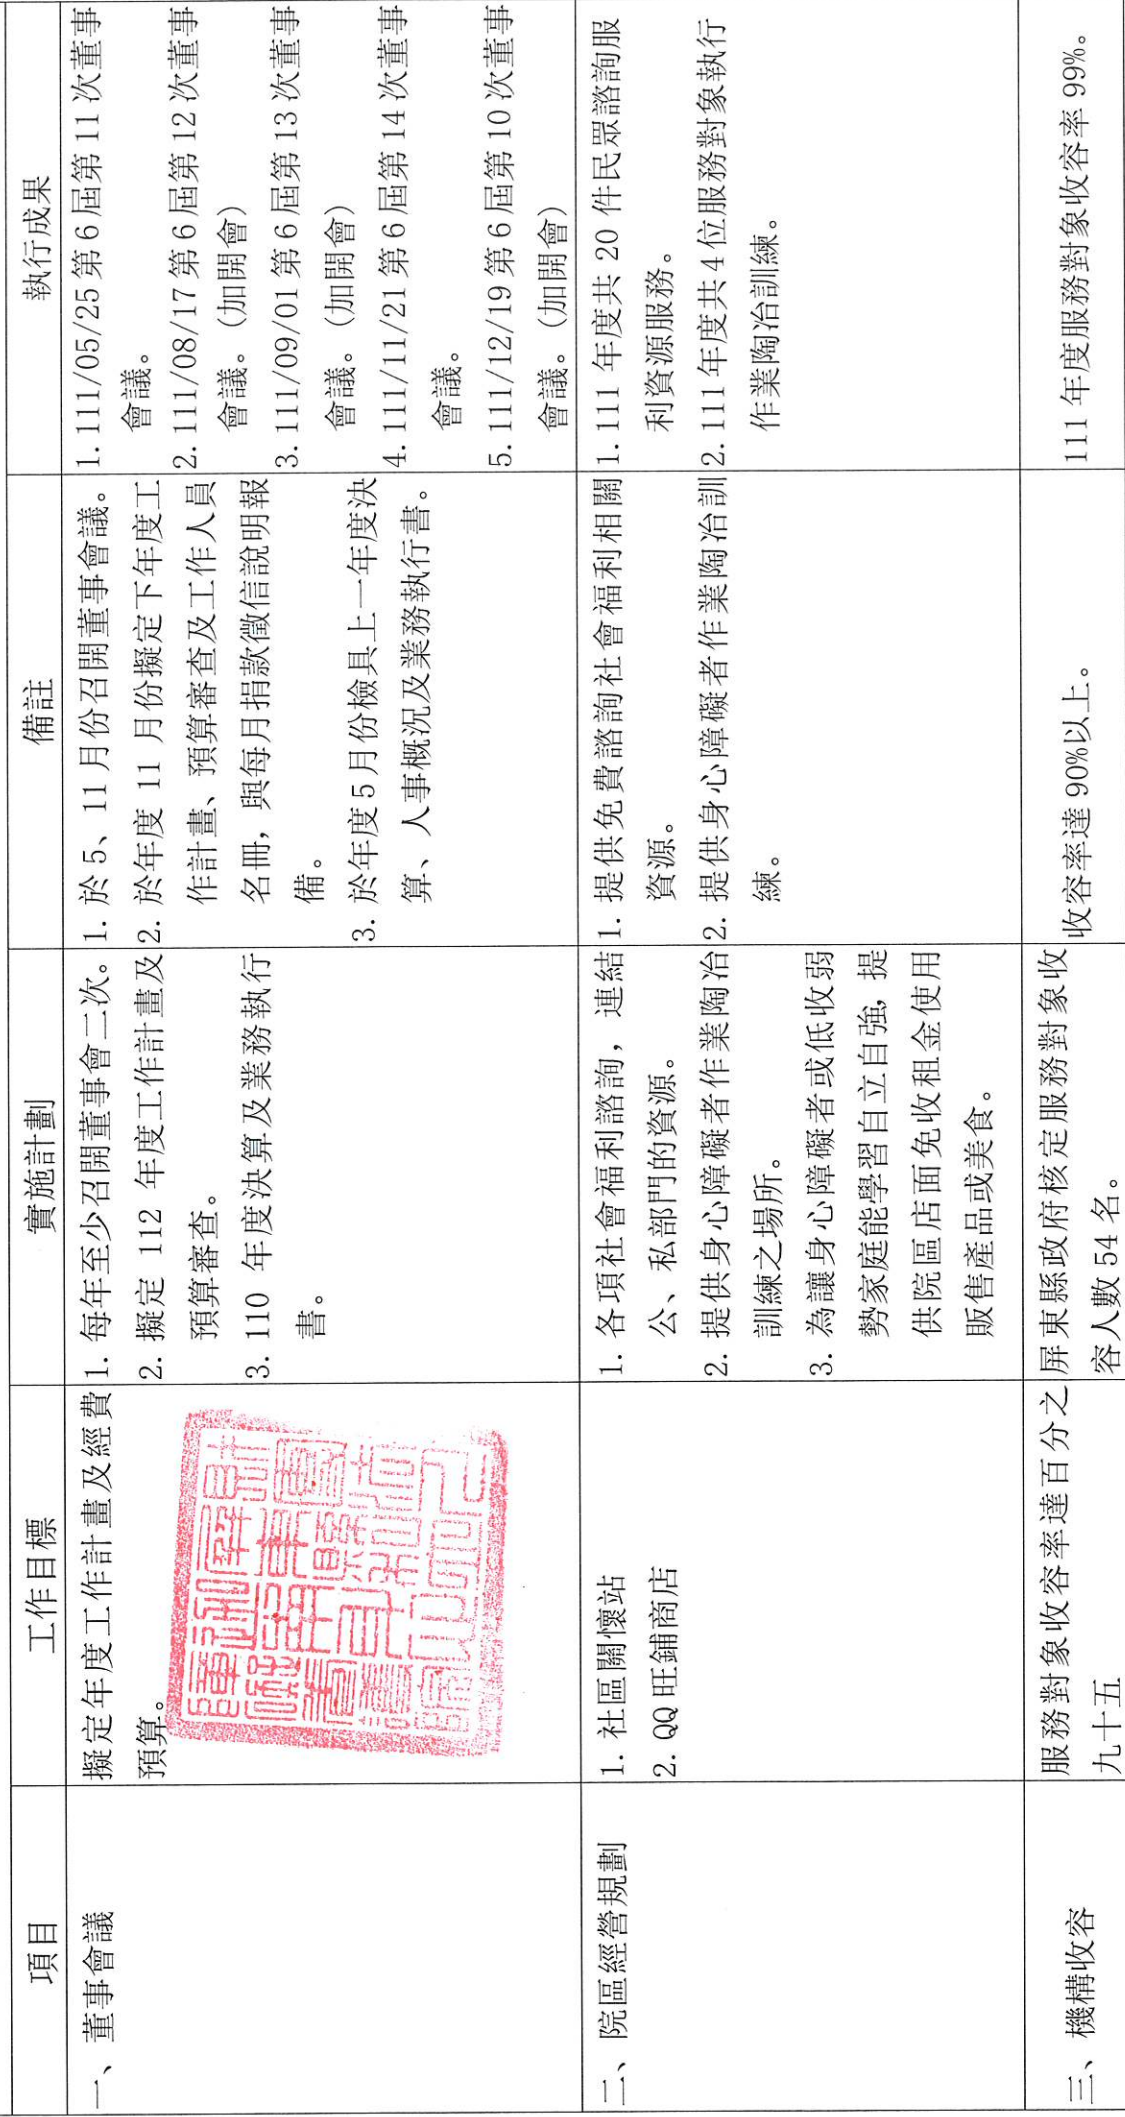 項目
工作目標
實施計劃
備註
執行成果
一、董事會議
擬定年度工作計畫及經費
預算。
1. 每年至少召開董事會二次。
2. 擬定 112 年度工作計畫及
預算審查。
3. 110 年度決算及業務執行
書。
1. 於 5、11 月份召開董事會議。
2. 於年度 11 月份擬定下年度工
作計畫、預算審查及工作人員
名冊，與每月捐款徵信說明報
備。
3. 於年度 5 月份檢具上一年度決
算、人事概況及業務執行書。
1. 111/05/25 第 6 屆第 11 次董事
會議。
2. 111/08/17 第 6 屆第 12 次董事
會議。(加開會)
3. 111/09/01 第 6 屆第 13 次董事
會議。(加開會)
4. 111/11/21 第 6 屆第 14 次董事
會議。
5. 111/12/19 第 6 屆第 10 次董事
會議。(加開會)
二、院區經營規劃
1. 社區關懷站
2. QQ 旺鋪商店
1. 各項社會福利諮詢，連結
公、私部門的資源。
2. 提供身心障礙者作業陶冶
訓練之場所。
3. 為讓身心障礙者或低收弱
勢家庭能學習自立自強，提
供院區店面免收租金使用
販售產品或美食。
1. 提供免費諮詢社會福利相關
資源。
2. 提供身心障礙者作業陶冶訓
練。
1. 111 年度共 20 件民眾諮詢服
利資源服務。
2. 111 年度共 4 位服務對象執行
作業陶冶訓練。
三、機構收容
服務對象收容率達百分之
九十五
屏東縣政府核定服務對象收
容人數 54 名。
收容率達 90%以上。
111 年度服務對象收容率 99%。